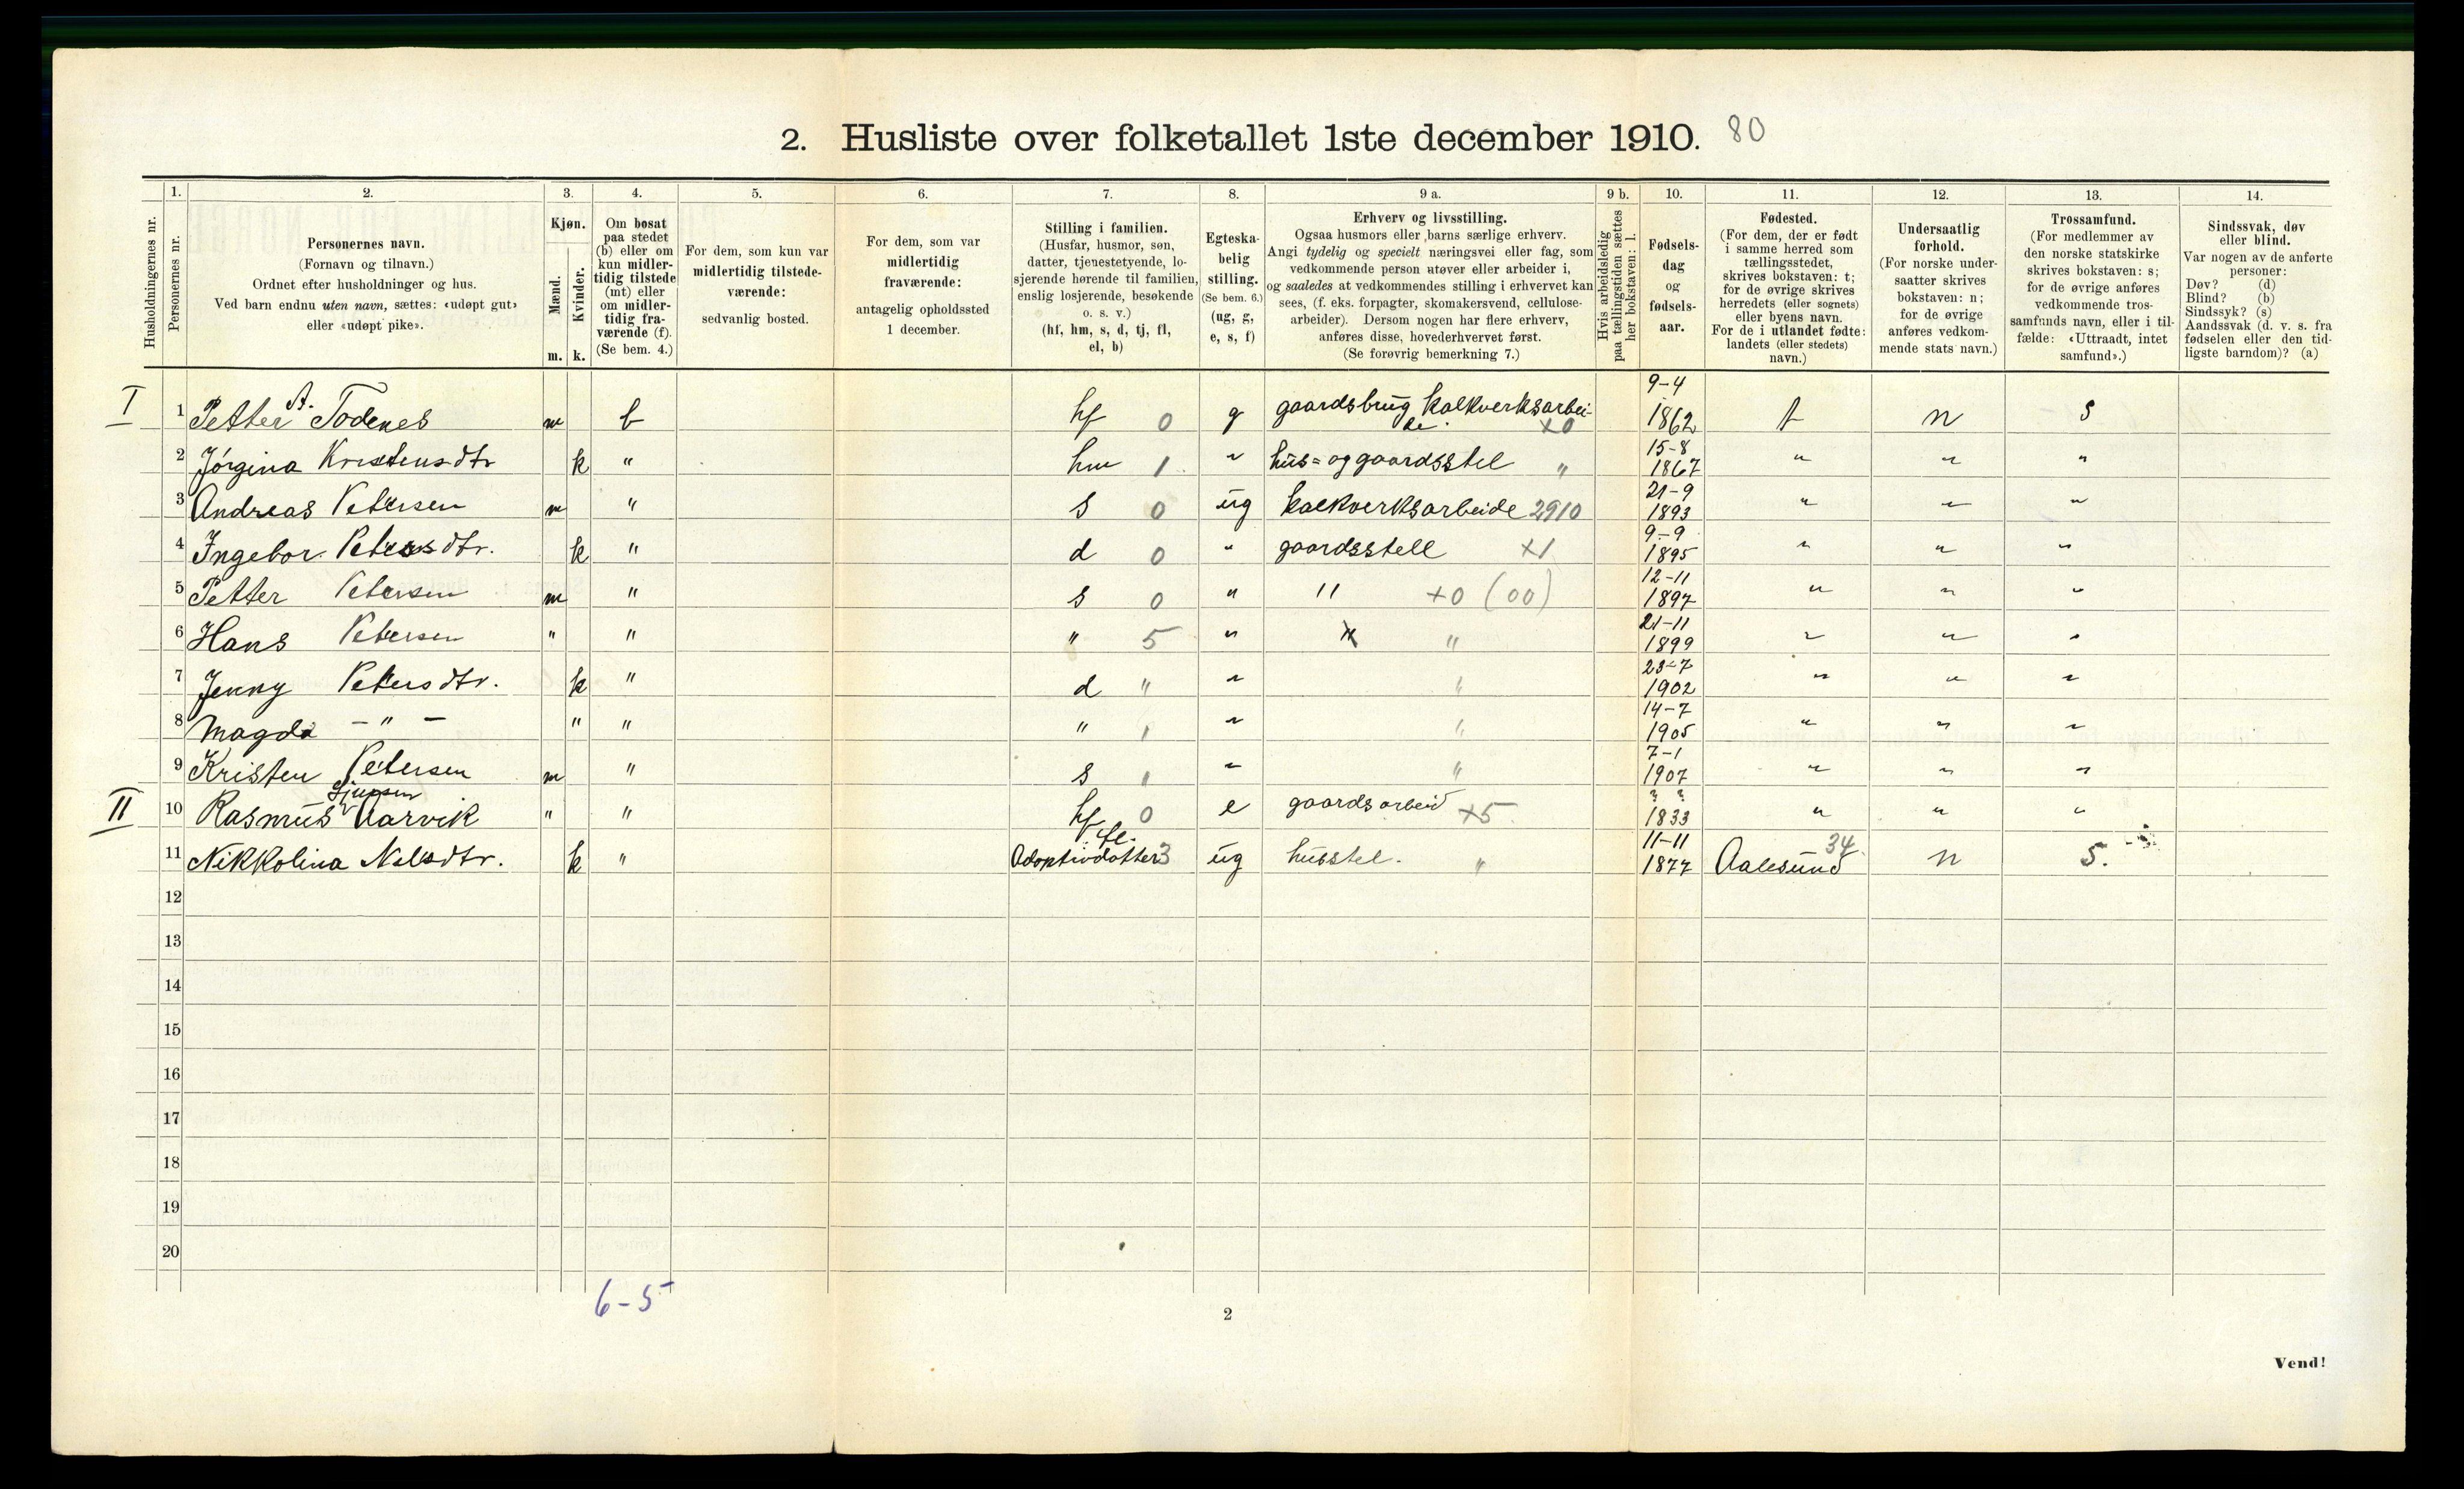 2. Husliste over folketallet 1ste december 1910. 80
Husholdningernes nr.
1.
Personernes nr.
2.
Personernes navn.
(Fornavn og tilnavn.)
Ordnet efter husholdninger og hus.
Ved barn endnu uten navn, sættes: «udøpt gut»
eller «udøpt pike».
3.
Kjøn.
Mænd.
Kvinder.
m. k.
4.
Om bosat
paa stedet
(b) eller om
kun midler-
tidig tilstede
(mt) eller
om midler-
tidig fra-
værende (f).
(Se bem. 4.)
5.
For dem, som kun var
midlertidig tilstede-
værende:
sedvanlig bosted.
6.
For dem, som var
midlertidig
fraværende:
antagelig opholdssted
1 december.
7.
Stilling i familien.
(Husfar, husmor, søn,
datter, tjenestetyende, lo-
sjerende hørende til familien,
enslig losjerende, besøkende
o. s. v.)
(hf, hm, s, d, tj, fl,
el, b)
8.
Egteska-
belig
stilling.
(Se bem. 6.)
(ug, g,
e, s, f)
9 a.
Erhverv og livsstilling.
Ogsaa husmors eller barns særlige erhverv.
Angi tydelig og specielt næringsvei eller fag, som
vedkommende person utøver eller arbeider i,
og saaledes at vedkommendes stilling i erhvervet kan
sees, (f. eks. forpagter, skomakersvend, cellulose-
arbeider). Dersom nogen har flere erhverv,
anføres disse, hovederhvervet først.
(Se forøvrig bemerkning 7.)
9 b.
Hvis arbeidsledig
paa tællingstiden sættes
her bokstaven: l.
10.
Fødsels-
dag
og
fødsels-
aar.
11.
Fødested.
(For dem, der er født
i samme herred som
tællingsstedet,
skrives bokstaven: t;
for de øvrige skrives
herredets (eller sognets)
eller byens navn.
For de i utlandet fødte:
landets (eller stedets)
navn.)
12.
Undersaatlig
forhold.
(For norske under-
saatter skrives
bokstaven: n;
for de øvrige
anføres vedkom-
mende stats navn.)
13.
Trossamfund.
(For medlemmer av
den norske statskirke
skrives bokstaven: s;
for de øvrige anføres
vedkommende tros-
samfunds navn, eller i til-
fælde: «Uttraadt, intet
samfund».)
14.
Sindssvak, døv
eller blind.
Var nogen av de anførte
personer:
Døv? (d)
Blind? (b)
Sindssyk? (s)
Aandssvak (d. v. s. fra
fødselen eller den tid-
ligste barndom)? (a)
I 1 Petter A. Todenes m b hf 0 g gaardsbrug kalkverksarbei-de. x0 9-4 1862 t n s
2 Jørgina Kristensdtr k " hm 1 " hus= og gaardsstel " 15-8 1867 " " "
3 Andreas Petersen m " s 0 ug kalkverksarbeide 2910 21-9 1893 " " "
4 Ingebor Petersdtr. k " d 0 " gaardsstell x1 9-9 1895 " " "
5 Petter Petersen m " s 0 " " +0 (00) 12-11 1897 " " "
6 Hans Petersen " " " 5 " " " 21-11 1899 " " "
7 Jenny Petersdtr. k " d " " " 23-7 1902 " " "
8 Magda - " - " " " 1 " " 14-7 1905 " " "
9 Kristen Petersen m " s 1 " " 7-1 1907 " " "
II 10 Rasmus Aarvik " " hf 0 e gaardsarbeid x5 ? ? 1833 " " "
11 Nikkolina Nilsdtr. k " Adoptivdatter fl. 3 ug husstel. " 11-11 1877 Aalesund 34 n s.
12
13
14
15
16
17
18
19
20
6-5
2
Vend!